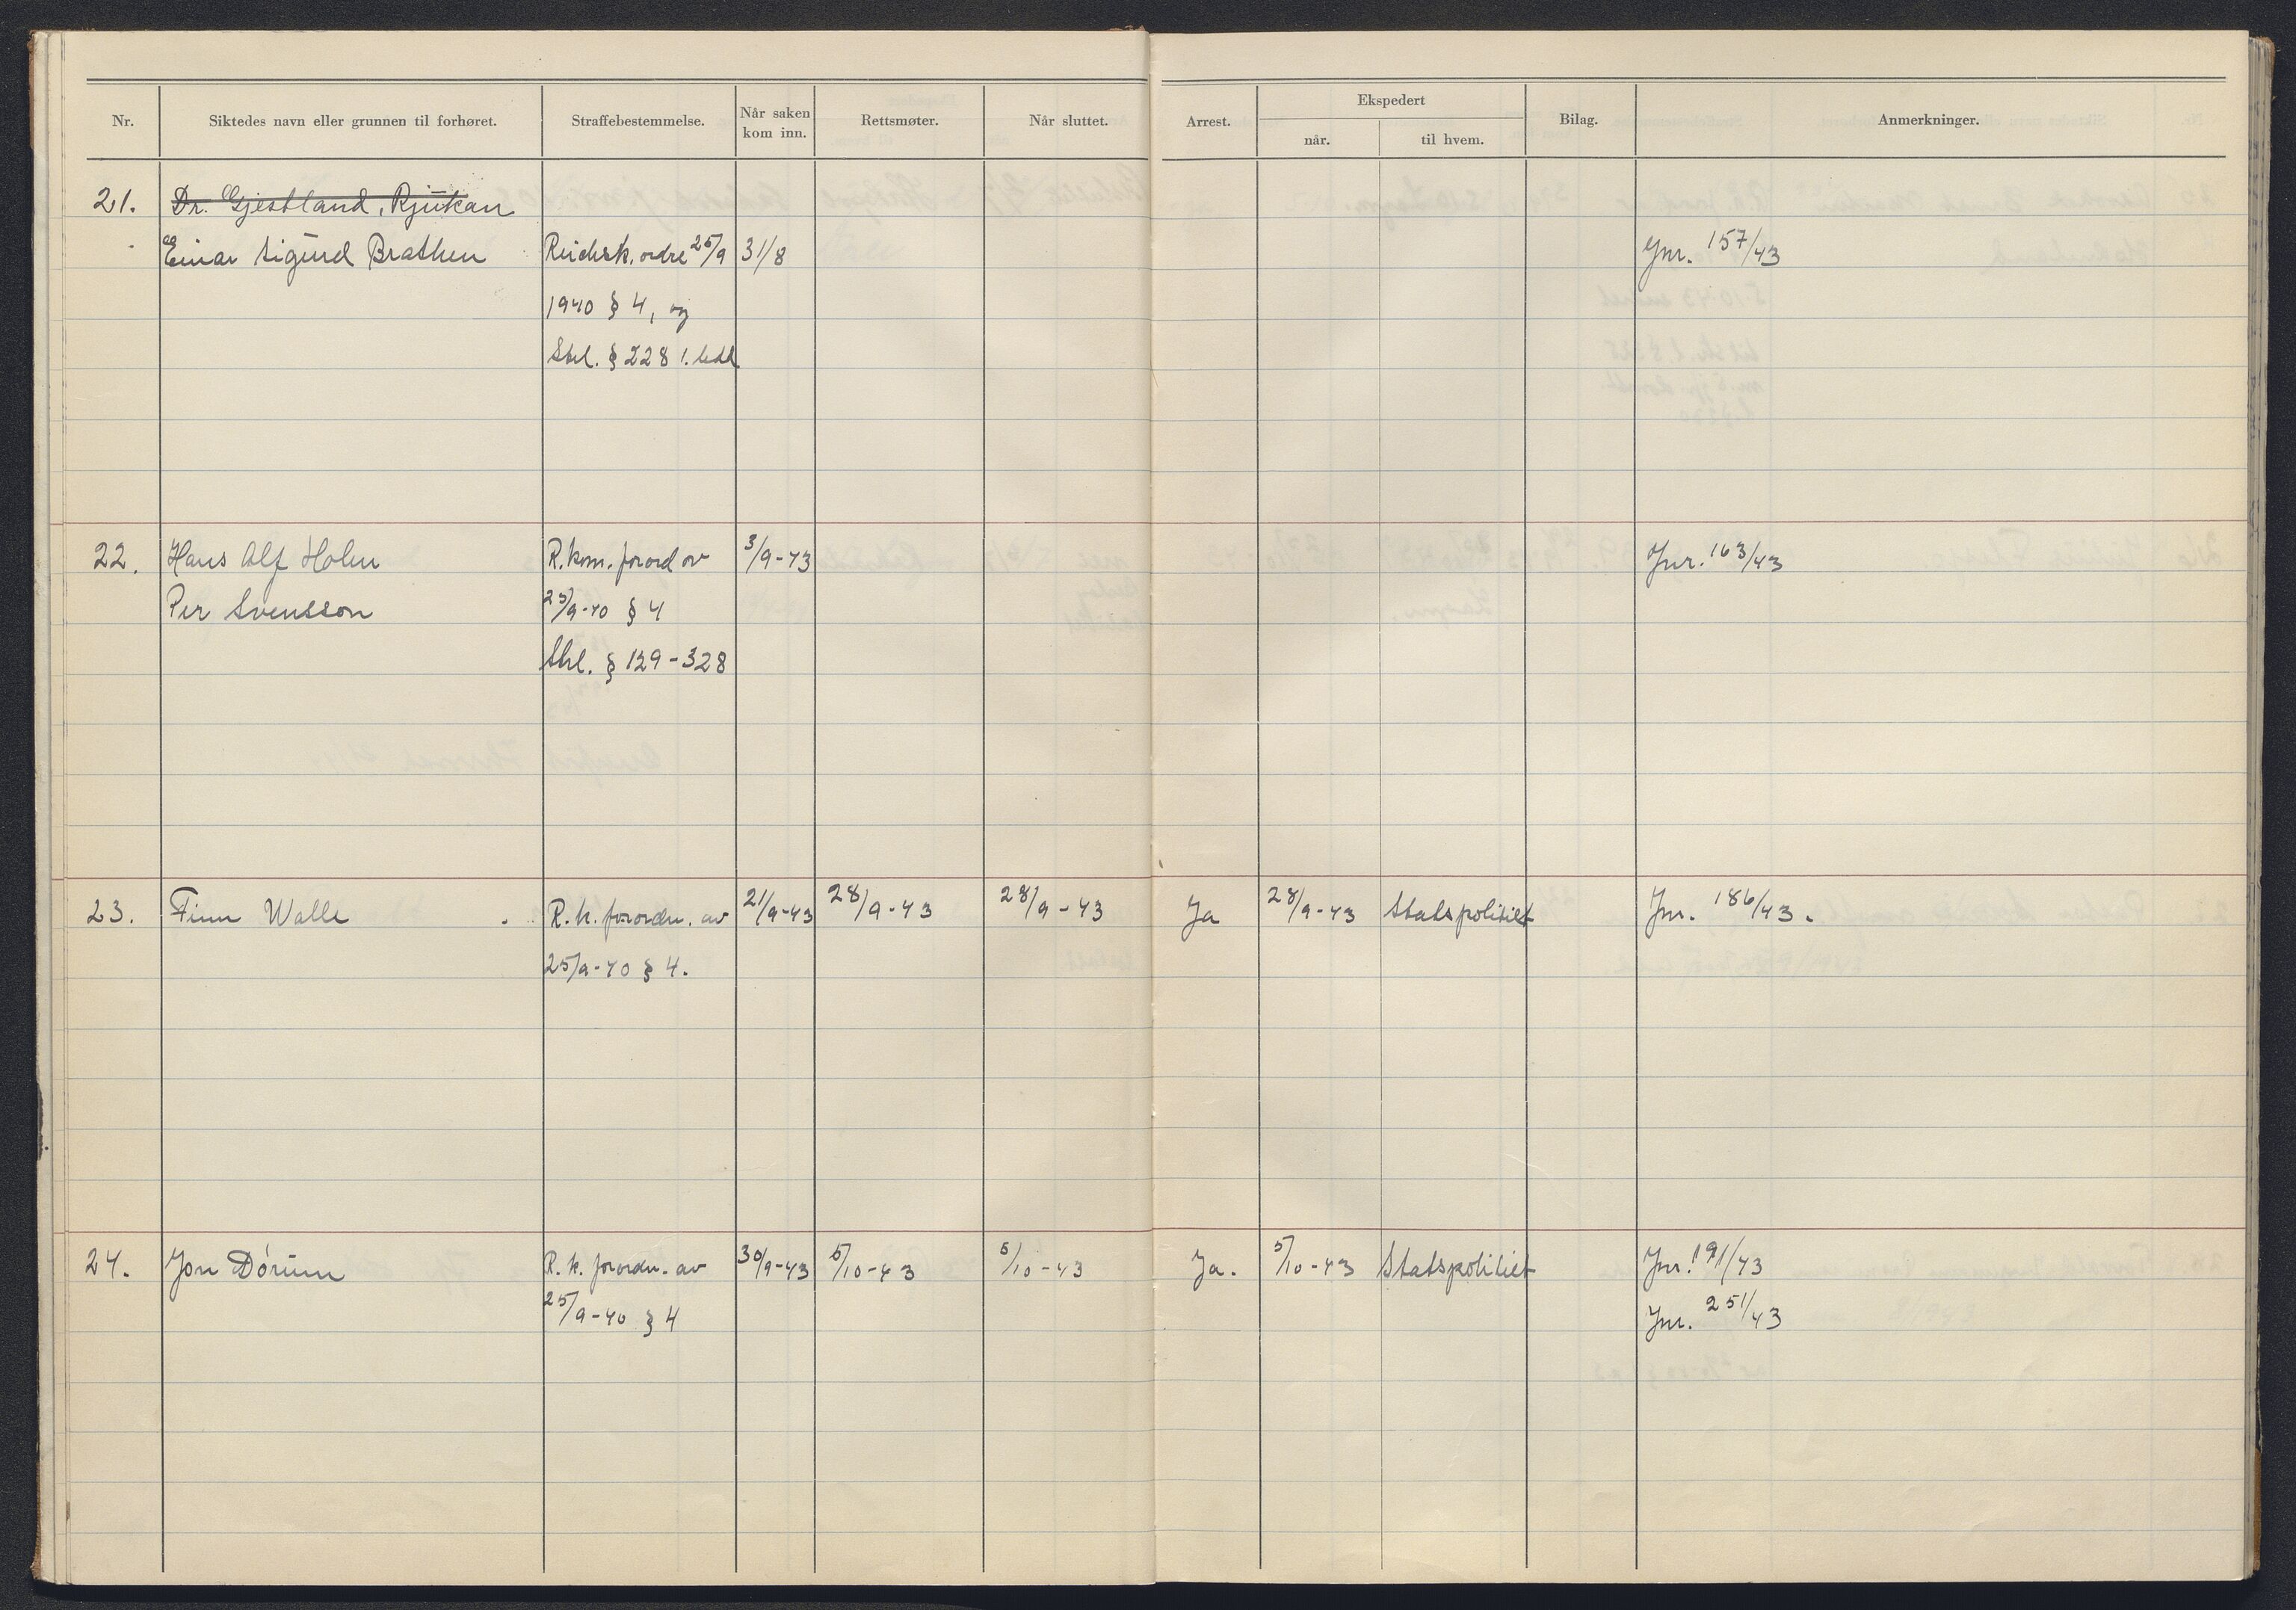 Nr. Siktedes navn eller grunnen til forhøret. Straffebestemmelse. Når saken kom inn. Rettsmøter. Når sluttet. Arrest. Ekspedert når. til hvem. Bilag. Anmerkninger.
21. Dr. Gjestland, Rjukan
Einar Sigurd Brathen Reichsk. ordre 25/9 31/8 Jnr. 157/43
1940 § 4, og
Strl. § 228 1. ledd
22. Hans Alf Holm R.kom. forord av 3/9-43 Jnr. 163/43
Per Svensson 25/9-40 § 4
Strl. § 129-328
23. Finn Walle R.k. forordn. av 21/9-43 28/9-43 28/9-43 Ja 28/9-43 Statspolitiet Jnr. 186/43.
25/9-40 § 4.
24. Jon Dórum R.k. forordn. av 30/9-43 5/10-43 5/10-43 Ja. 5/10-43 Statspolitiet Jnr. 191/43
25/9-40 § 4 Jnr. 251/43